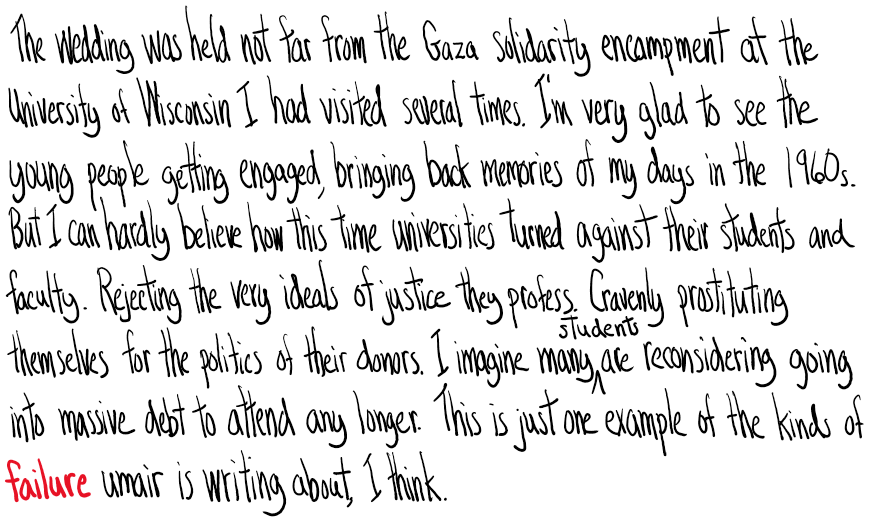 The wedding was held not far from the Gaza solidarity encampment at the
University of Wisconsin I had visited several times. I'm very glad to see the
young people getting engaged, bringing back memories of my days in the 1960s.
But I can hardly believe how this time universities turned against their students and
faculty. Rejecting the very ideals of justice they profess. Cravenly prostituting
students
themselves for the politics of their donors. I imagine many ^ are reconsidering going
into massive debt to attend any longer. This is just one example of the kinds of
failure umair is writing about, I think.